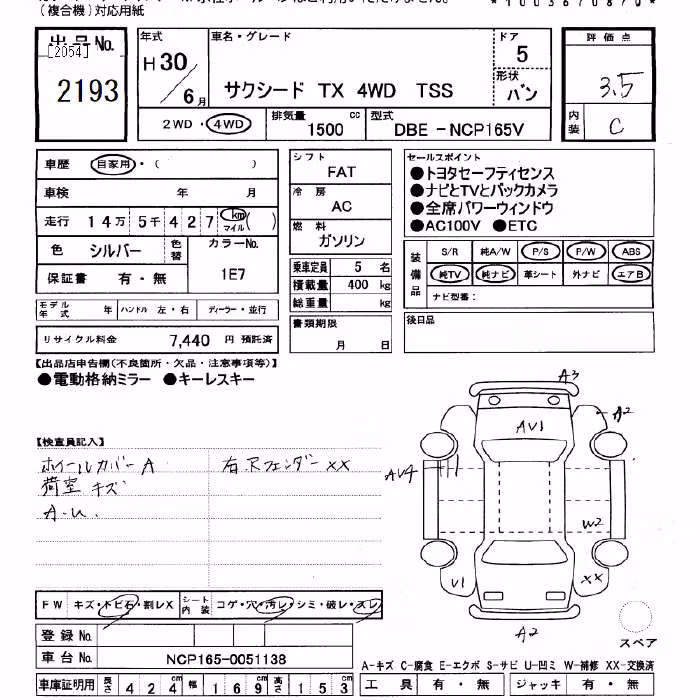 (複合機)対応用紙
出品No.
[2054]
2193
年式
H30
6月
車名・グレード
サクシード TX 4WD TSS
ドア
5
形状
バン
評価点
3.5
内装
C
2WD・4WD
排気量
1500 cc
型式
DBE-NCP165V
車歴 自家用・( )
車検 年 月
走行 14万5千427 km マイル ( )
色 シルバー 色替
カラーNo.
1E7
保証書 有・無
モデル年式 年 ハンドル 左・右 ディーラー・並行
リサイクル料金 7,440 円 預託済
シフト
FAT
冷房
AC
燃料
ガソリン
乗車定員 5 名
積載量 400 kg
総重量 kg
書類期限
月 日
セールスポイント
●トヨタセーフティセンス
●ナビとTVとバックカメラ
●全席パワーウィンドウ
●AC100V ●ETC
装備品
S/R 純A/W P/S P/W ABS
純TV 純ナビ 革シート 外ナビ エアB
ナビ型番:
後日品
【出品店申告欄(不良箇所・欠品・注意事項等)】
●電動格納ミラー ●キーレスキー
【検査員記入】
ホイールカバーA 右Rフェンダー××
荷室キズ
A-U.
A3
A2
AV1
AV4
W2
V1
XX
A2
スペア
FW キズ・トビ石・割レX
シート内装 コゲ・穴・汚レ・シミ・破レ・スレ
登録No.
車台No. NCP165-0051138
車庫証明用 長さ 424 cm 幅 169 cm 高さ 153 cm
A-キズ C-腐食 E-エクボ S-サビ U-凹ミ W-補修 XX-交換済
工具 有・無 ジャッキ 有・無